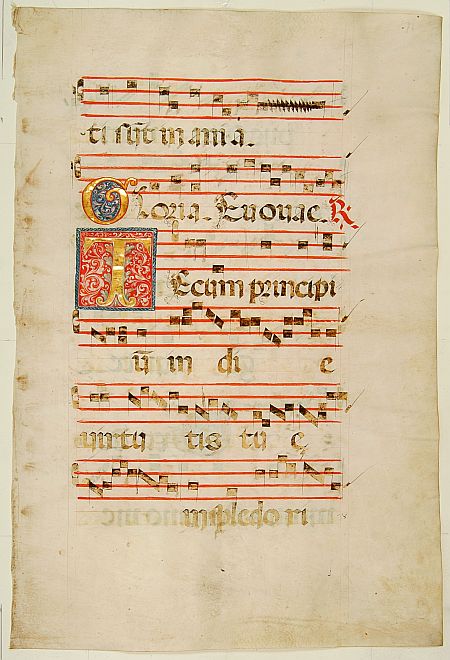 ti sūt in
Gloria. Euouae. R.
Tecum principi
ū in di e
uirtu tis tu e
in splēdo ri